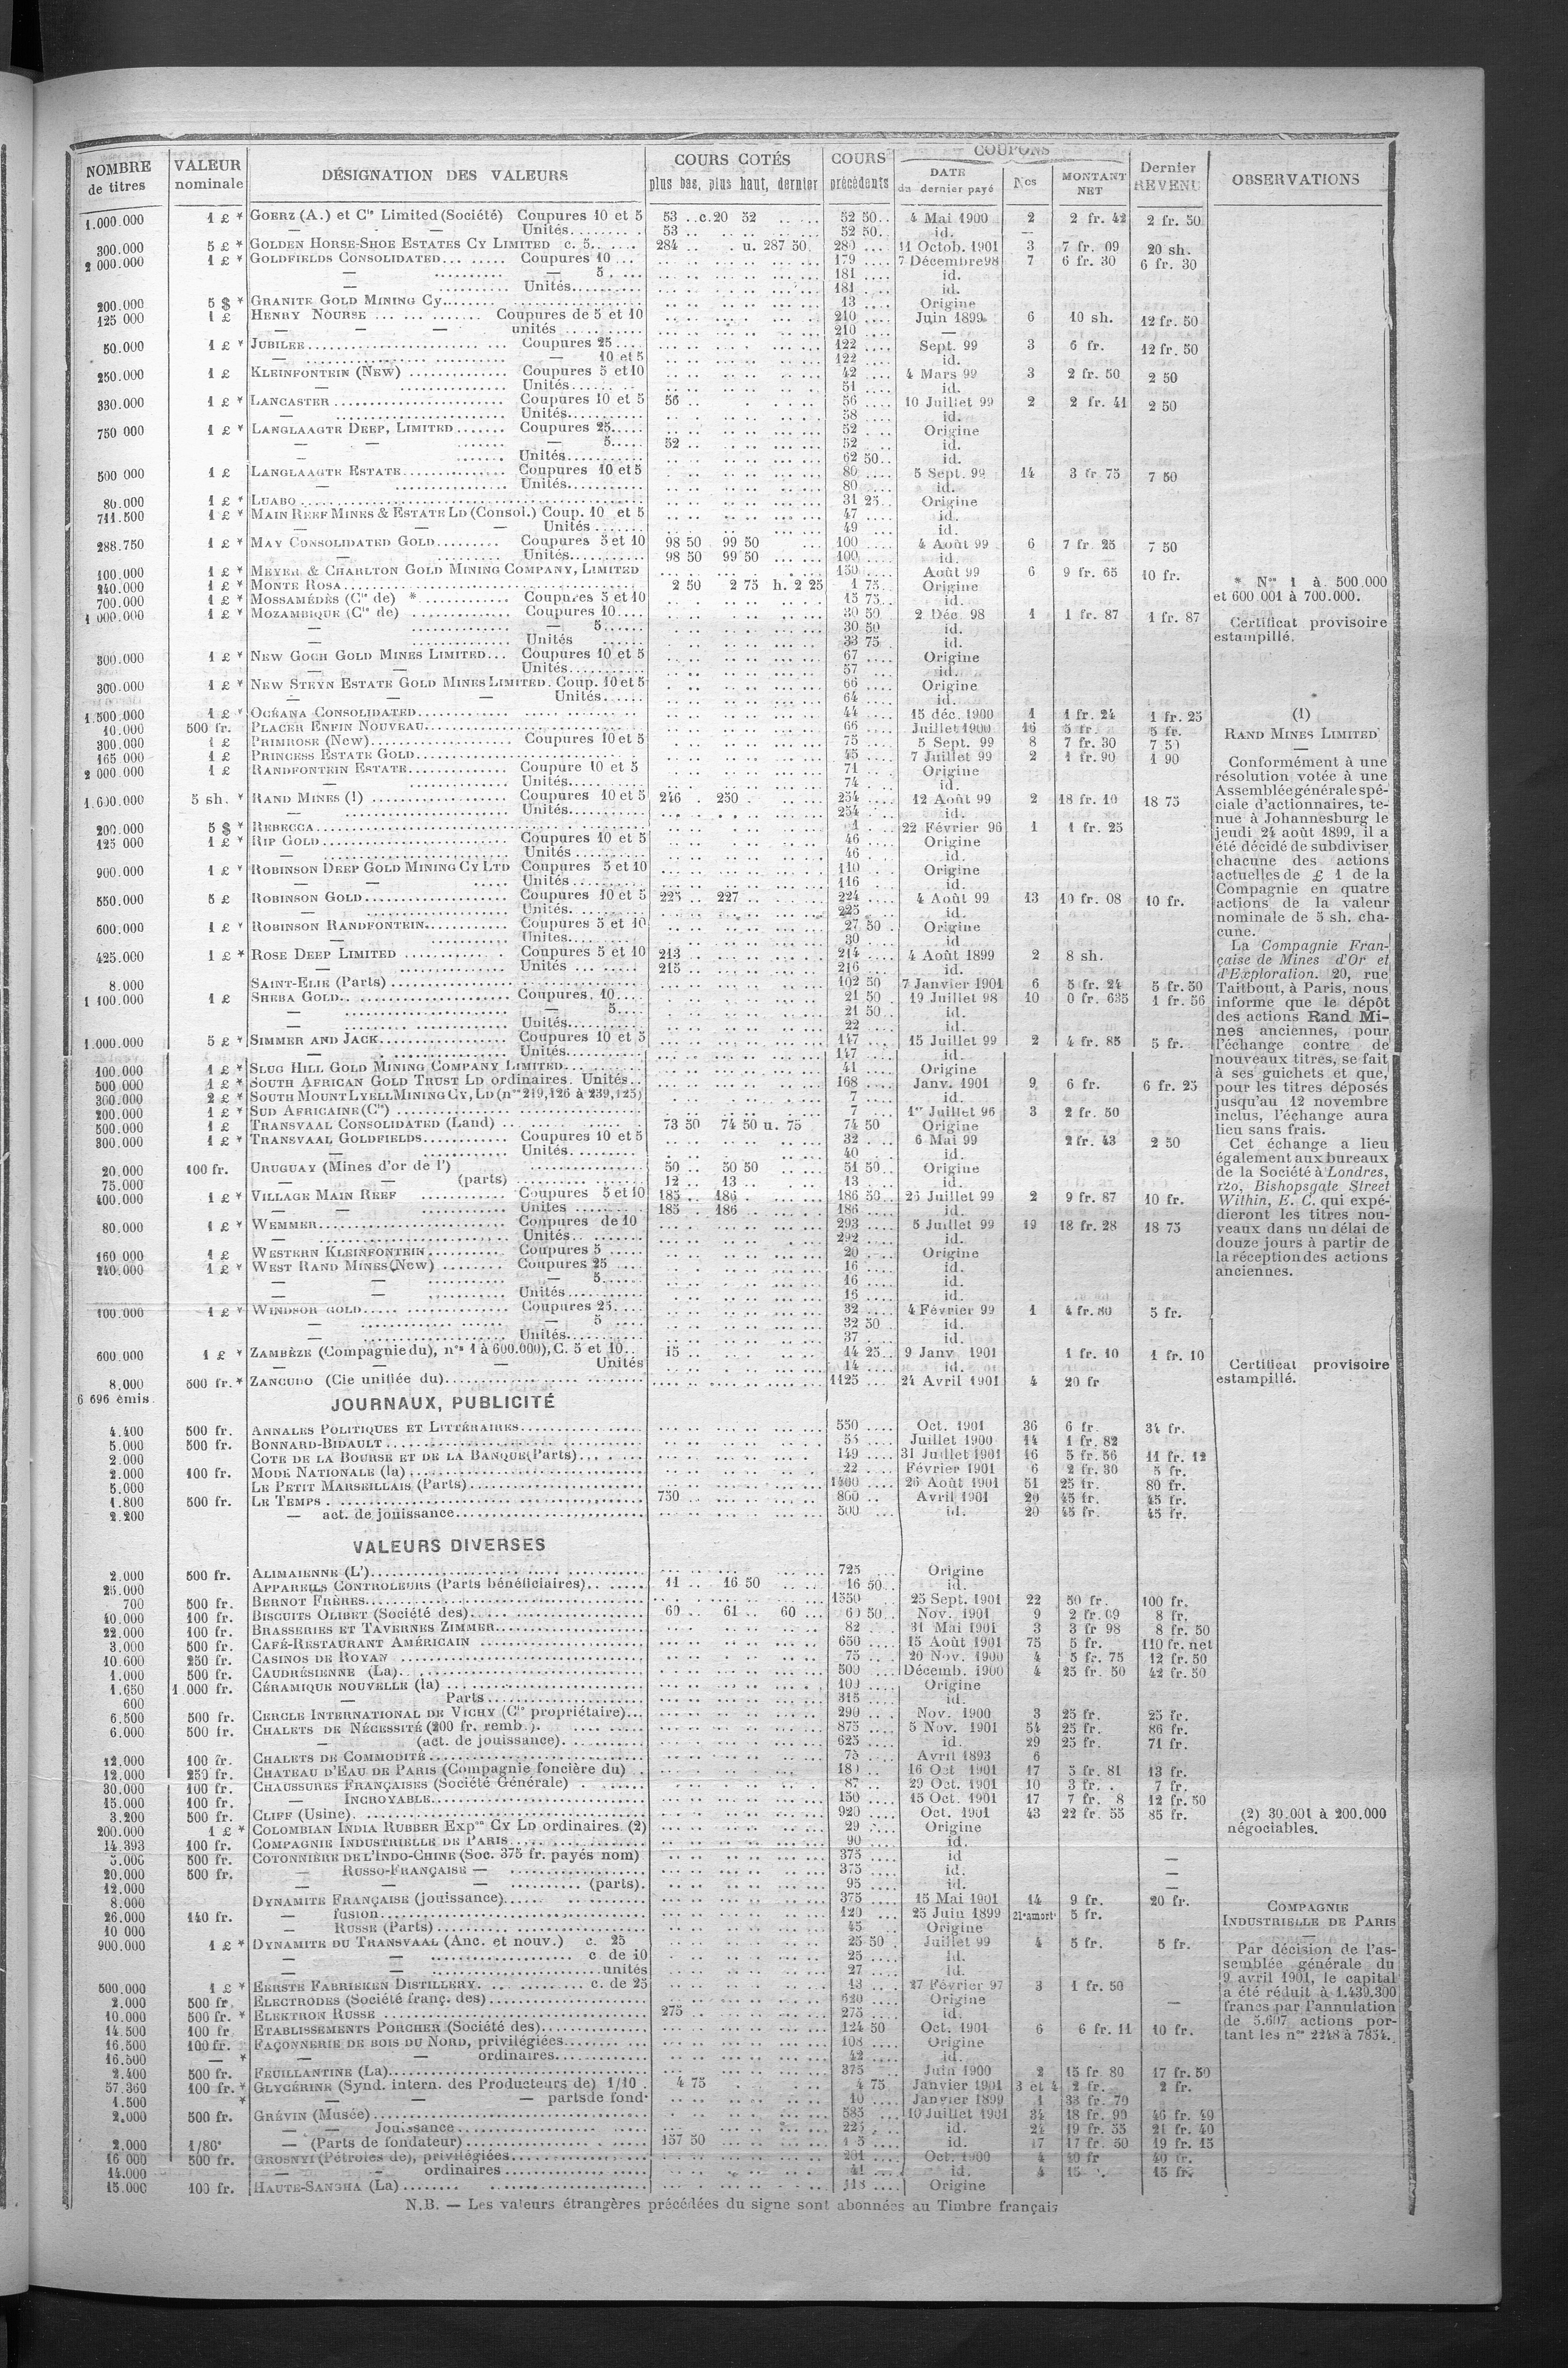 NOMBRE de titres | VALEUR nominale | DÉSIGNATION DES VALEURS | COURS COTÉS plus bas, plus haut, dernier | COURS précédents | COUPONS DATE du dernier payé | Nos | MONTANT NET | Dernier REVENU | OBSERVATIONS
1.000.000 1 £ * GOERZ (A.) et Cie Limited (Société) Coupures 10 et 5 53 .. c.20 52 52 50 4 Mai 1900 2 2 fr. 42 2 fr. 50
— - — Unités 53 .. 52 50 id. —
300.000 5 £ * GOLDEN HORSE-SHOE ESTATES CY LIMITED c. 5 284 .. u. 287 50 280 11 Octob. 1901 3 7 fr. 09 20 sh.
2 000.000 1 £ * GOLDFIELDS CONSOLIDATED Coupures 10 179 7 Décembre 98 7 6 fr. 30 6 fr. 30
— — 5 181 id.
— Unités 181 id.
200.000 5 $ * GRANITE GOLD MINING Cy 13 Origine
125 000 1 £ HENRY NOURSE Coupures de 5 et 10 210 Juin 1899 6 10 sh. 12 fr. 50
— — — unités 210 —
50.000 1 £ * JUBILEE Coupures 25 122 Sept. 99 3 6 fr. 12 fr. 50
— — 10 et 5 122 id.
250.000 1 £ KLEINFONTEIN (NEW) Coupures 5 et 10 42 4 Mars 99 3 2 fr. 50 2 50
— Unités 51 id.
330.000 1 £ * LANCASTER Coupures 10 et 5 56 .. 56 10 Juillet 99 2 2 fr. 41 2 50
— Unités 58 id.
750 000 1 £ * LANGLAAGTE DEEP, LIMITED Coupures 25 52 Origine
— - — 5 52 .. 52 id.
— Unités 62 50 id.
500 000 1 £ LANGLAAGTE ESTATE Coupures 10 et 5 80 5 Sept. 99 14 3 fr 75 7 50
— Unités 80 id.
80.000 1 £ * LUABO 31 25 Origine
711.500 1 £ * MAIN REEF MINES & ESTATE LD (Consol.) Coup. 10 et 5 47 id.
— — — Unités 49 id.
288.750 1 £ * MAY CONSOLIDATED GOLD Coupures 5 et 10 98 50 99 50 100 4 Août 99 6 7 fr. 25 7 50
— Unités 98 50 99 50 100 id.
100.000 1 £ * MEYER & CHARLTON GOLD MINING COMPANY, LIMITED 150 Août 99 6 9 fr. 65 10 fr.
240.000 1 £ * MONTE ROSA 2 50 2 75 h. 2 25 1 75 Origine
700.000 1 £ * MOSSAMÉDÈS (Cie de) * Coupures 5 et 10 15 75 id.
1 000.000 1 £ * MOZAMBIQUE (Cie de) Coupures 10 30 50 2 Déc. 98 1 1 fr. 87 1 fr. 87
— — 5 30 50 id.
— Unités 33 75 id.
300.000 1 £ * NEW GOCH GOLD MINES LIMITED Coupures 10 et 5 67 Origine
— — Unités 57 id.
300.000 1 £ * NEW STEYN ESTATE GOLD MINES LIMITED. Coup. 10 et 5 66 Origine
— — — Unités 64 id.
1.500.000 1 £ * OCÉANA CONSOLIDATED 44 15 déc. 1900 1 1 fr. 24 1 fr. 25
10.000 500 fr. PLACER ENFIN NOUVEAU 66 Juillet 1900 16 5 fr. 5 fr.
300.000 1 £ PRIMROSE (New) Coupures 10 et 5 75 5 Sept. 99 8 7 fr. 30 7 50
165 000 1 £ PRINCESS ESTATE GOLD 45 7 Juillet 99 2 1 fr. 90 1 90
2 000.000 1 £ RANDFONTEIN ESTATE Coupure 10 et 5 71 Origine
— Unités 74 id.
1.600.000 5 sh. * RAND MINES (1) Coupures 10 et 5 246 . 250 254 12 Août 99 2 18 fr. 10 18 75
— Unités 254 id.
200.000 5 $ * REBECCA 1 22 Février 96 1 1 fr. 25
125 000 1 £ * RIP GOLD Coupures 10 et 5 46 Origine
— Unités 46 id.
900.000 1 £ * ROBINSON DEEP GOLD MINING CY LTD Coupures 5 et 10 110 Origine
— — Unités 116 id.
550.000 5 £ ROBINSON GOLD Coupures 10 et 5 225 . 227 224 4 Août 99 13 10 fr. 08 10 fr.
— Unités 225 id.
600.000 1 £ * ROBINSON RANDFONTEIN Coupures 5 et 10 27 50 Origine
— Unites 30 id
425.000 1 £ * ROSE DEEP LIMITED Coupures 5 et 10 213 214 4 Août 1899 2 8 sh.
— Unités 215 216 id.
8.000 SAINT-ELIE (Parts) 102 50 7 Janvier 1901 6 5 fr. 24 5 fr. 50
1 100.000 1 £ SHEBA GOLD Coupures 10 21 50 19 Juillet 98 10 0 fr. 635 1 fr. 56
— — 5 21 50 id.
— Unités 22 id.
1.000.000 5 £ * SIMMER AND JACK Coupures 10 et 5 147 15 Juillet 99 2 4 fr. 85 5 fr.
— Unités 147 id.
100.000 1 £ * SLUG HILL GOLD MINING COMPANY LIMITED 41 Origine
500 000 1 £ * SOUTH AFRICAN GOLD TRUST LD ordinaires. Unités 168 Janv. 1901 9 6 fr. 6 fr. 25
300.000 2 £ * SOUTH MOUNT LYELL MINING CY, LD (nos 219,126 à 239,125) 7 id.
200.000 1 £ * SUD AFRICAINE (Cie) 7 1er Juillet 96 3 2 fr. 50
500.000 1 £ TRANSVAAL CONSOLIDATED (Land) 73 50 74 50 u. 75 74 50 Origine
300.000 1 £ * TRANSVAAL GOLDFIELDS Coupures 10 et 5 32 6 Mai 99 2 fr. 43 2 50
— Unités 40 id.
20.000 100 fr. URUGUAY (Mines d'or de l') 50 .. 50 50 51 50 Origine
75.000 — — (parts) 12 .. 13 .. 13 id.
400.000 1 £ * VILLAGE MAIN REEF Coupures 5 et 10 185 .. 186 186 50 25 Juillet 99 2 9 fr. 87 10 fr.
— — Unités 185 .. 186 186 id.
80.000 1 £ * WEMMER Coupures de 10 293 5 Juillet 99 19 18 fr. 28 18 75
— Unités 292 id.
160.000 1 £ WESTERN KLEINFONTEIN Coupures 5 20 Origine
240.000 1 £ * WEST RAND MINES (New) Coupures 25 16 id.
— — — 5 16 id.
— — Unités 16 id.
100.000 1 £ * WINDSOR GOLD Coupures 25 32 4 Février 99 1 4 fr. 80 5 fr.
— — 5 32 50 id.
— Unités 37 id.
600.000 1 £ * ZAMBÈZE (Compagnie du), nos 1 à 600.000), C. 5 et 10 15 .. 14 25 9 Janv 1901 1 fr. 10 1 fr. 10
— — — Unités 14 id.
8.000 500 fr. * ZANCUDO (Cie unifiée du) 1125 24 Avril 1901 4 20 fr
6 696 émis
JOURNAUX, PUBLICITÉ
4.400 500 fr. ANNALES POLITIQUES ET LITTÉRAIRES 550 Oct. 1901 36 6 fr. 34 fr.
5.000 500 fr. BONNARD-BIDAULT Juillet 1900 14 1 fr. 82
2.000 COTE DE LA BOURSE ET DE LA BANQUE (Parts) 149 31 Juillet 1901 16 5 fr. 56 11 fr. 12
2.000 100 fr. MODE NATIONALE (la) 22 Février 1901 6 2 fr. 30 5 fr.
5.000 LE PETIT MARSEILLAIS (Parts) 1400 26 Août 1901 51 25 fr. 80 fr.
1.800 500 fr. LE TEMPS 750 860 Avril 1901 20 45 fr. 45 fr.
2.200 — act. de jouissance 500 id. 20 45 fr. 45 fr.
VALEURS DIVERSES
2.000 500 fr. ALIMAIENNE (L') 725 Origine
25.000 APPAREILS CONTROLEURS (Parts bénéficiaires) 11 .. 16 50 16 50 id.
700 500 fr. BERNOT FRÈRES 1350 25 Sept. 1901 22 50 fr. 100 fr.
40.000 100 fr. BISCUITS OLIBET (Société des) 60 .. 61 .. 60 60 50 Nov. 1901 9 2 fr. 09 8 fr.
22.000 100 fr. BRASSERIES ET TAVERNES ZIMMER 82 31 Mai 1901 3 3 fr 98 8 fr. 50
3.000 500 fr. CAFÉ-RESTAURANT AMÉRICAIN 650 15 Août 1901 75 5 fr. 110 fr. net
10.600 250 fr. CASINOS DE ROYAN 75 20 Nov. 1900 4 5 fr. 75 12 fr. 50
1.000 500 fr. CAUDRÉSIENNE (La) 500 Décemb. 1900 4 25 fr. 50 42 fr. 50
1.650 1.000 fr. CÉRAMIQUE NOUVELLE (la) 100 Origine
600 — Parts 315 id.
6.500 500 fr. CERCLE INTERNATIONAL DE VICHY (Cie propriétaire) 290 Nov. 1900 3 25 fr. 25 fr.
6.000 500 fr. CHALETS DE NÉCESSITÉ (200 fr. remb.) 875 5 Nov. 1901 54 25 fr. 86 fr.
— (act. de jouissance) 625 id. 29 25 fr. 71 fr.
12.000 100 fr. CHALETS DE COMMODITÉ 75 Avril 1893 6
12.000 250 fr. CHATEAU D'EAU DE PARIS (Compagnie foncière du) 180 16 Oct 1901 17 5 fr. 81 13 fr.
30.000 100 fr. CHAUSSURES FRANÇAISES (Société Générale) 87 29 Oct. 1901 10 3 fr. 7 fr.
15.000 100 fr. — INCROYABLE 150 15 Oct. 1901 17 7 fr. 8 12 fr. 50
3.200 500 fr. CLIFF (Usine) 920 Oct. 1901 43 22 fr. 55 85 fr.
200.000 1 £ * COLOMBIAN INDIA RUBBER Expon CY LD ordinaires (2) 29 Origine
14.393 100 fr. COMPAGNIE INDUSTRIELLE DE PARIS 90 id.
500 fr. COTONNIÈRE DE L'INDO-CHINE (Soc. 375 fr. payés nom) 375 id —
20.000 500 fr. — RUSSO-FRANÇAISE — 375 id. —
12.000 — — — (parts) 95 id. —
8.000 DYNAMITE FRANÇAISE (jouissance) 375 15 Mai 1901 14 9 fr. 20 fr.
26.000 140 fr. — fusion 120 25 Juin 1899 21e amort. 5 fr.
10 000 — RUSSE (Parts) 45 Origine
900.000 1 £ * DYNAMITE DU TRANSVAAL (Anc. et nouv.) c. 25 25 50 Juillet 99 4 5 fr. 5 fr.
— — c de 10 25 id.
— — unités 27 id.
500.000 1 £ * EERSTE FABRIEKEN DISTILLERY c. de 25 13 27 Février 97 3 1 fr. 50
2.000 500 fr. ELECTRODES (Société franç. des) 620 Origine —
10.000 500 fr. * ELEKTRON RUSSE 275 275 id.
14.500 100 fr ETABLISSEMENTS PORCHER (Société des) 124 50 Oct. 1901 6 6 fr. 11 10 fr.
16.500 100 fr. FAÇONNERIE DE BOIS DU NORD, privilégiées 108 Origine
16.500 — * — — ordinaires 42 id.
2.400 500 fr. FEUILLANTINE (La) 375 Juin 1900 2 15 fr 80 17 fr. 50
57.360 100 fr. * GLYCÉRINE (Synd. intern. des Producteurs de) 1/10 4 75 4 75 Janvier 1901 3 et 4 2 fr. 2 fr.
1.500 * — — — parts de fond. 10 Janvier 1899 1 33 fr. 70
2.000 500 fr. GRÉVIN (Musée) 585 10 Juillet 1901 34 18 fr. 90 46 fr. 49
— — Jouissance 225 id. 24 19 fr. 55 21 fr. 40
2.000 1/80e — (Parts de fondateur) 157 50 id. 17 17 fr. 50 19 fr. 15
16 000 500 fr. GROSNYI (Pétroles de), privilégiées 201 Oct. 1900 4 40 fr 40 fr.
14.000 — - ordinaires 41 id. 4 15 15 fr.
15.000 100 fr. HAUTE-SANGHA (La) 118 Origine
N.B. — Les valeurs étrangères précédées du signe sont abonnées au Timbre français
* Nos 1 à 500.000
et 600 001 à 700.000.
Certificat provisoire
estampillé.
(1)
RAND MINES LIMITED
—
Conformément à une
résolution votée à une
Assemblée générale spé-
ciale d'actionnaires, te-
nue à Johannesburg le
jeudi 24 août 1899, il a
été décidé de subdiviser
chacune des actions
actuelles de £ 1 de la
Compagnie en quatre
actions de la valeur
nominale de 5 sh. cha-
cune.
La Compagnie Fran-
çaise de Mines d'Or et
d'Exploration. 20, rue
Taitbout, à Paris, nous
informe que le dépôt
des actions Rand Mi-
nes anciennes, pour
l'échange contre de
nouveaux titres, se fait
à ses guichets et que,
pour les titres déposés
jusqu'au 12 novembre
inclus, l'échange aura
lieu sans frais.
Cet échange a lieu
également aux bureaux
de la Société à Londres,
120, Bishopsgate Street
Within, E. C. qui expé-
dieront les titres nou-
veaux dans un délai de
douze jours à partir de
la réception des actions
anciennes.
Certificat provisoire
estampillé.
(2) 30.001 à 200.000
négociables.
COMPAGNIE
INDUSTRIELLE DE PARIS
—
Par décision de l'as-
semblée générale du
9 avril 1901, le capital
a été réduit à 1.439.300
francs par l'annulation
de 5.607 actions por-
tant les nos 2248 à 7854.